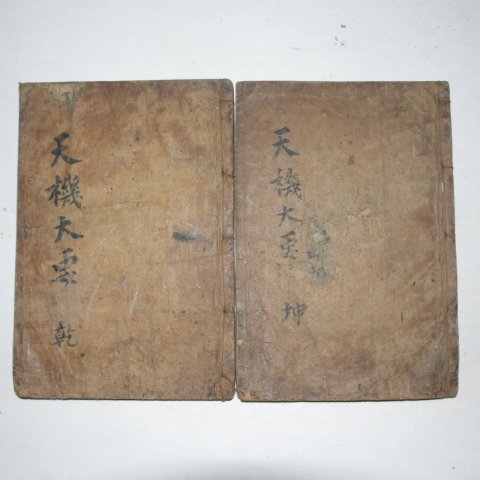 天機大要
乾
天機大要
坤